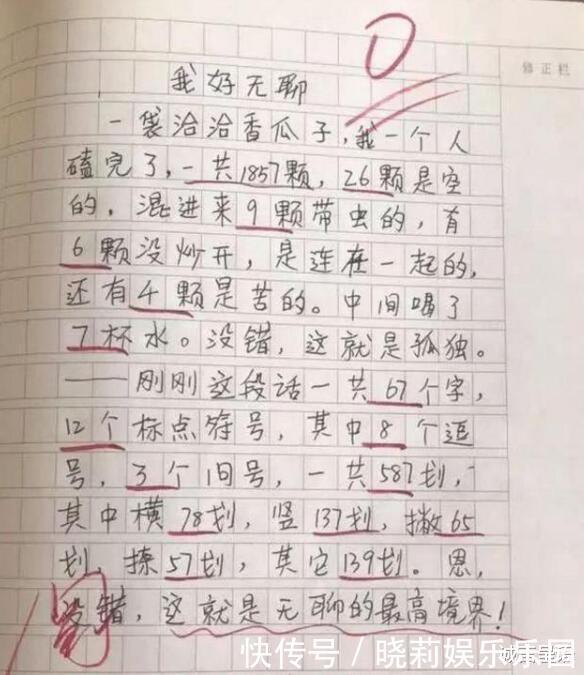 0
修正栏
我好无聊
一袋洽洽香瓜子,我一个人
磕完了,一共1857颗,26颗是空
的,混进来9颗带虫的,有
6颗没炒开,是连在一起的,
还有4颗是苦的。中间喝了
7杯水。没错,这就是孤独。
——刚刚这段话一共67个字,
12个标点符号,其中8个逗
号,3个旧号,一共587划,
其中横78划,竖137划,撇65
划,捺57划,其它139划。恩,
没错,这就是无聊的最高境界!
快传号/晓莉娱乐乐园